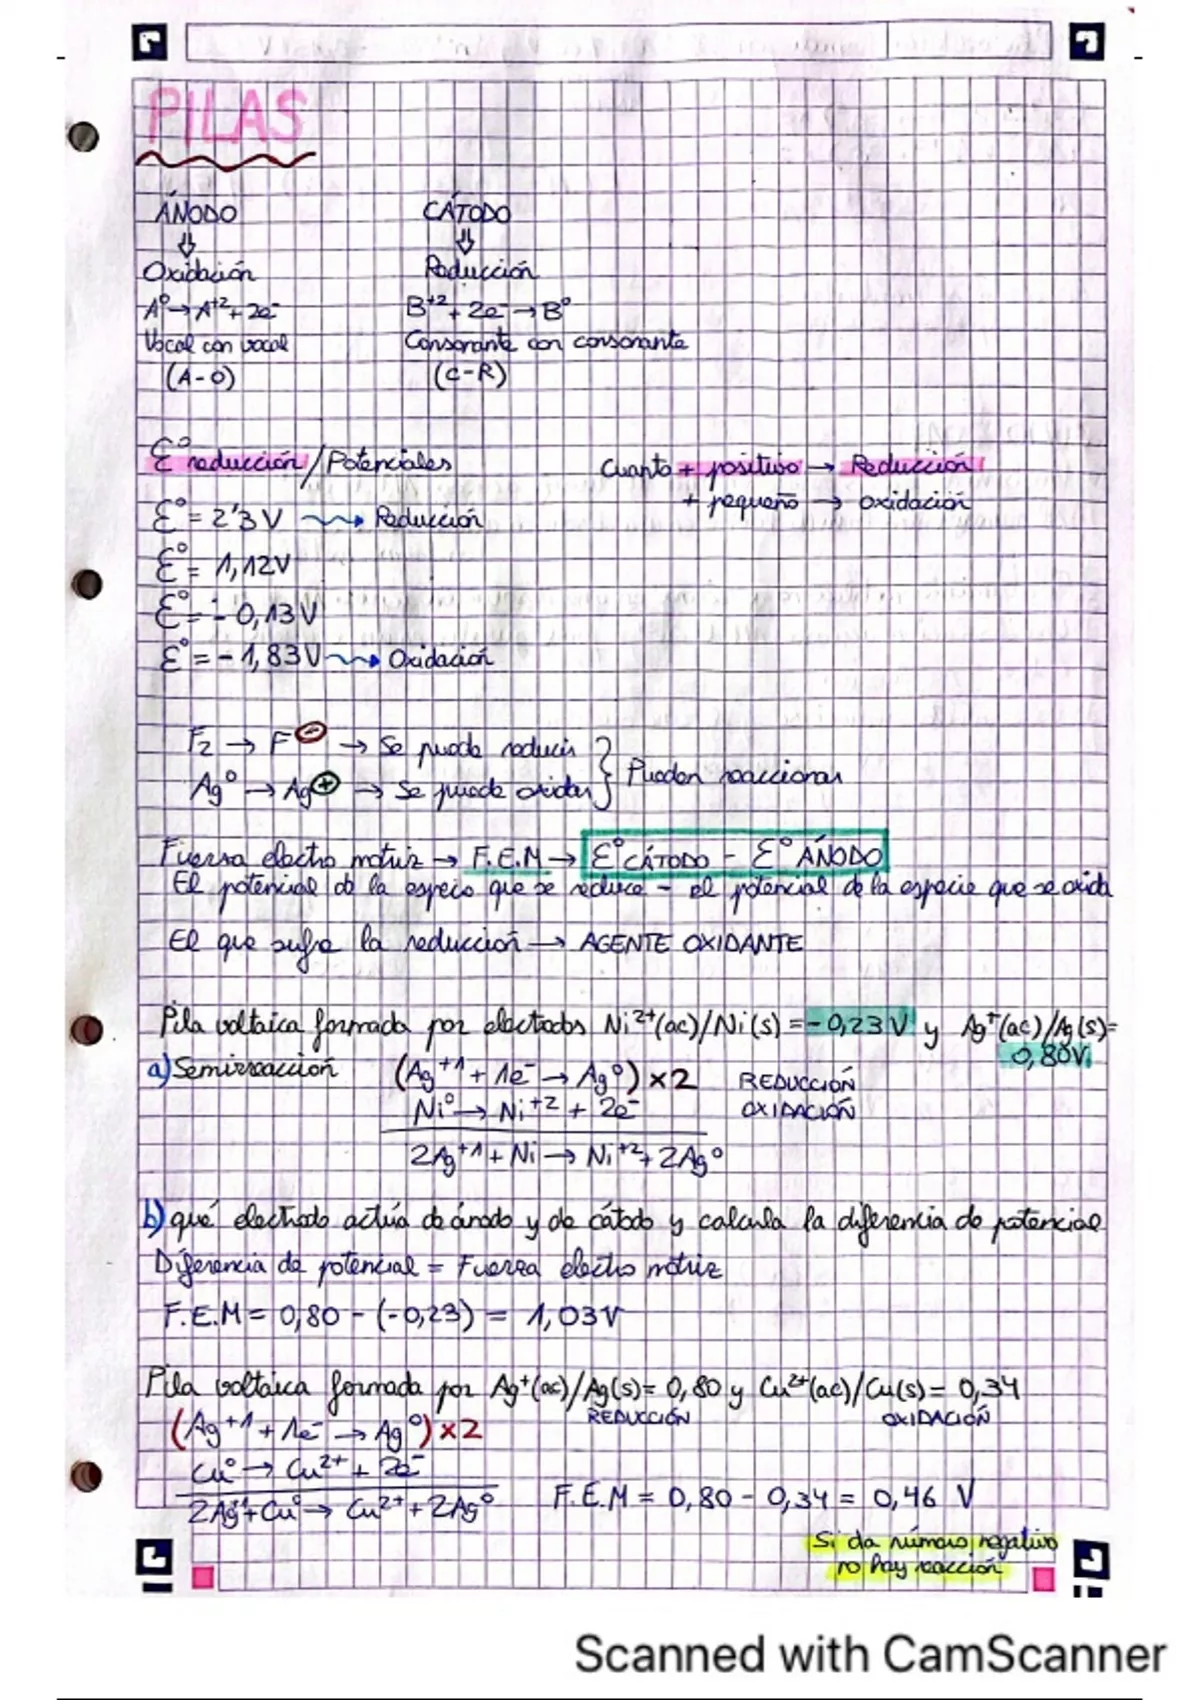 PILAS
ÁNODO CÁTODO
⇓ ⇓
Oxidación Reducción
A⁰→A⁺²+2e⁻ B⁺²+2e⁻→B⁰
Vocal con vocal Consonante con consonante
(A-O) (C-R)
Ɛ⁰ reducción/Potenciales Cuanto + positivo → Reducción
+ pequeño → oxidación
Ɛ⁰= 2'3V ⇝ Reducción
Ɛ⁰= 1,12V
Ɛ⁰= -0,13V
Ɛ⁰=-1,83V ⇝ Oxidación
F₂ → F⊖ → Se puede reducir } Pueden reaccionar
Ag⁰ → Ag⊕ → Se puede oxidar
Fuerza electro motriz → F.E.M → Ɛ⁰CÁTODO - Ɛ⁰ÁNODO
El potencial de la especie que se reduce - el potencial de la especie que se oxida
El que sufre la reducción → AGENTE OXIDANTE
Pila voltaica formada por electrodos Ni²⁺(ac)/Ni(s) =-0,23V y Ag⁺(ac)/Ag(s)=
0,80V
a) Semirreacción (Ag⁺¹+1e⁻→Ag⁰)×2 REDUCCIÓN
Ni⁰→Ni⁺²+2e⁻ OXIDACIÓN
2Ag⁺¹+Ni→Ni⁺²+2Ag⁰
b) qué electrodo actúa de ánodo y de cátodo y calcula la diferencia de potencial
Diferencia de potencial = Fuerza electro motriz
F.E.M= 0,80-(-0,23) = 1,03V
Pila voltaica formada por Ag⁺(ac)/Ag(s)= 0,80 y Cu²⁺(ac)/Cu(s)= 0,34
REDUCCIÓN OXIDACIÓN
(Ag⁺¹+1e⁻→Ag⁰)×2
Cu⁰→Cu²⁺+2e⁻
2Ag⁺¹+Cu⁰→Cu²⁺+2Ag⁰ F.E.M = 0,80-0,34 = 0,46 V
Si da número negativo
no hay reacción
Scanned with CamScanner